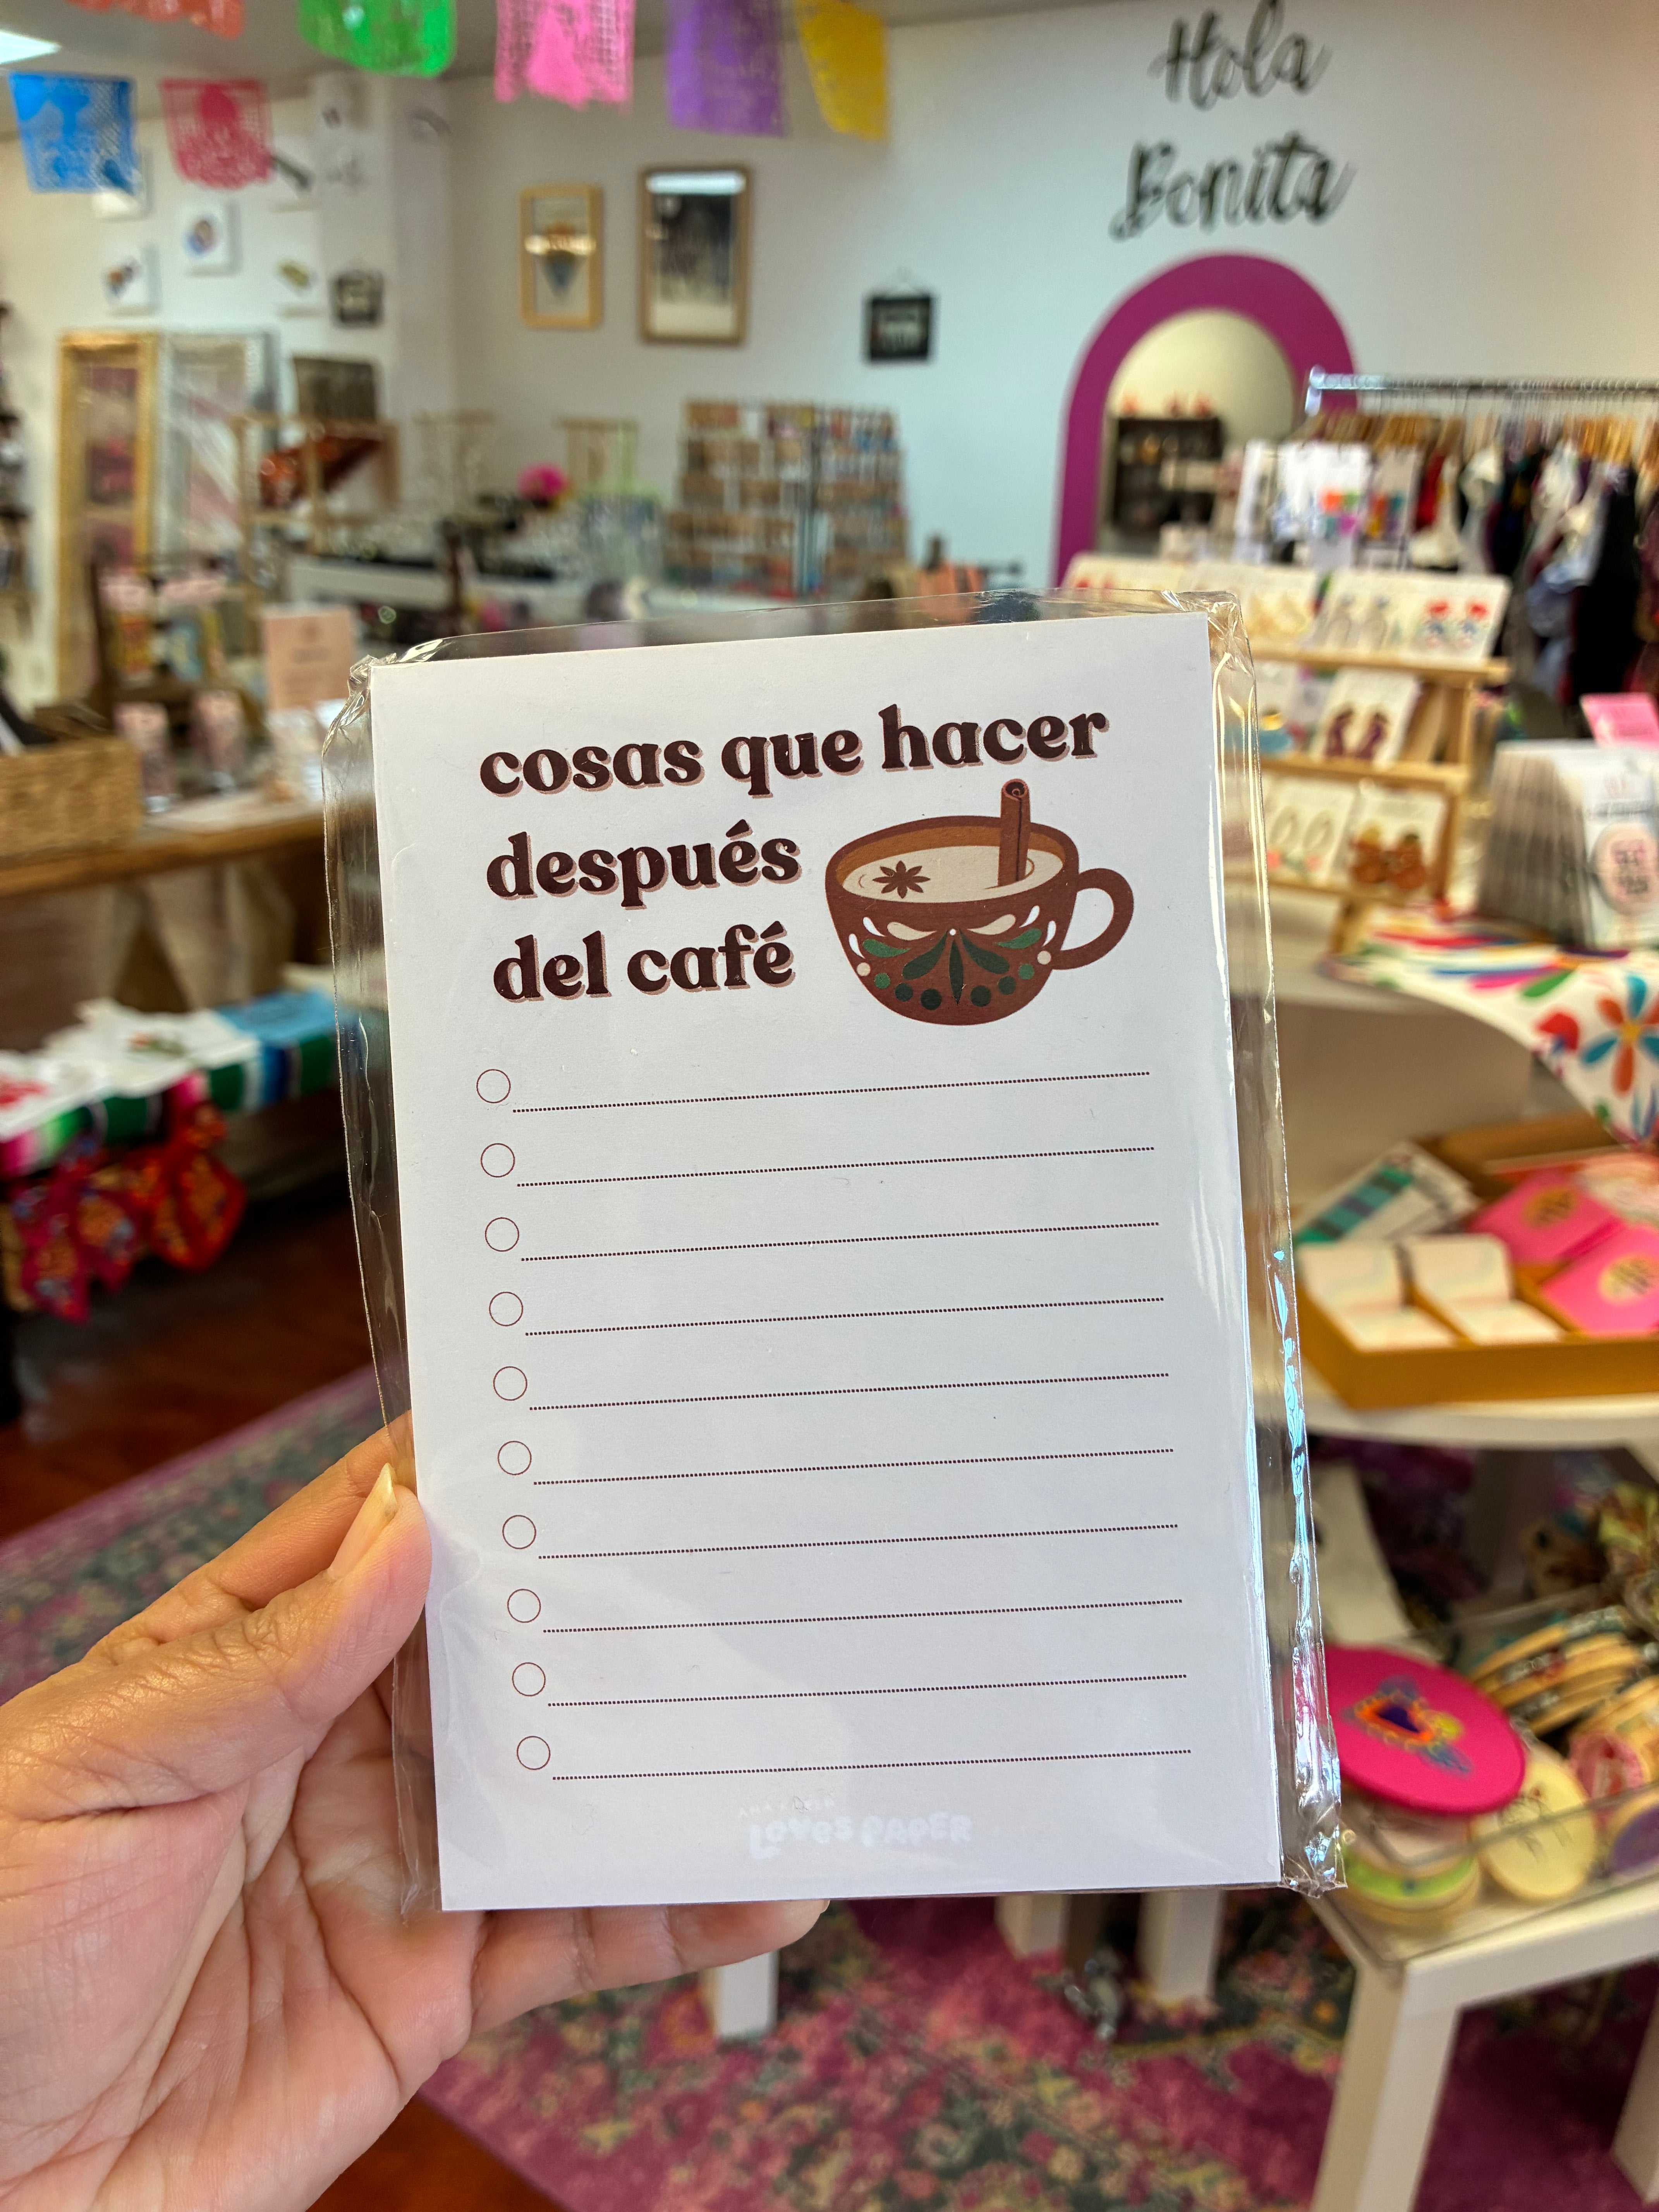 Hola
Bonita
cosas que hacer
después
del café
LOVES PAPER